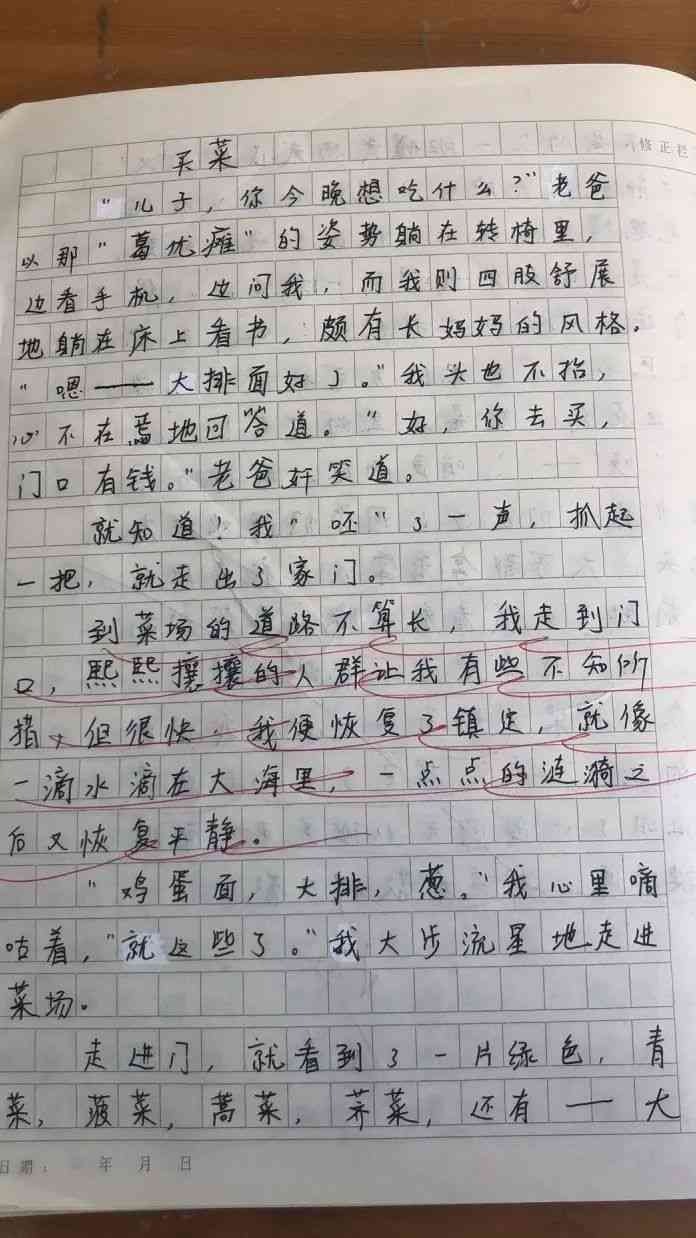 修正栏
买菜
“儿子，你今晚想吃什么？”老爸
以那“葛优瘫”的姿势躺在转椅里，
边看手机，边问我，而我则四肢舒展
地躺在床上看书，颇有长妈妈的风格。
“嗯——大排面好了。”我头也不抬，
心不在焉地回答道。“好，你去买，
门口有钱。”老爸奸笑道。
就知道！我“呸”了一声，抓起
一把，就走出了家门。
到菜场的道路不算长，我走到门
口，熙熙攘攘的人群让我有些不知所
措，但很快，我便恢复了镇定，就像
一滴水滴在大海里，一点点的涟漪之
后又恢复平静。
“鸡蛋面，大排，葱。”我心里嘀
咕着，“就这些了。”我大步流星地走进
菜场。
走进门，就看到了一片绿色，青
菜，菠菜，蒿菜，荠菜，还有——大
日期： 年 月 日